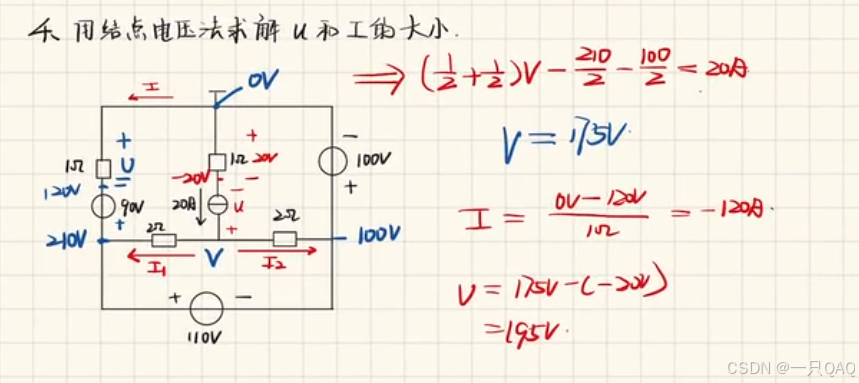 4、用结点电压法求解 u 和 I 的大小.
⟹ (1/2 + 1/2)V − 210/2 − 100/2 = 20A
V = 175V.
I = (0V − 120V)/1Ω = −120A.
U = 175V − (−20V)
= 195V.
I
0V
+
+
−
1Ω
U
1Ω 20V
100V
120V
−
−20V
−
−
+
90V
20A
u
+
2Ω
+
2Ω
210V
V
100V
I₁
I₂
+
−
110V
CSDN @一只QAQ